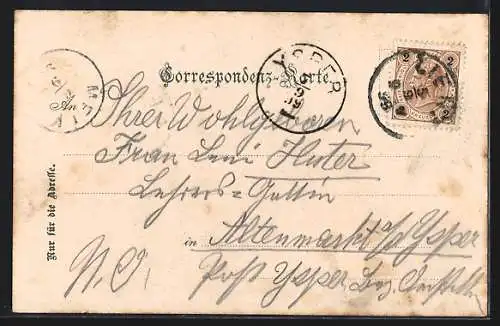 Correspondenz-Karte.
YSPER
MELK
2 2
An
Ihrer Wohlgeboren
Frau Leni Huter
Lehrers-Gattin
in Altenmarkt a/d Ysper
Post Ysper Bez.
N.Ö.
Nur für die Adresse.